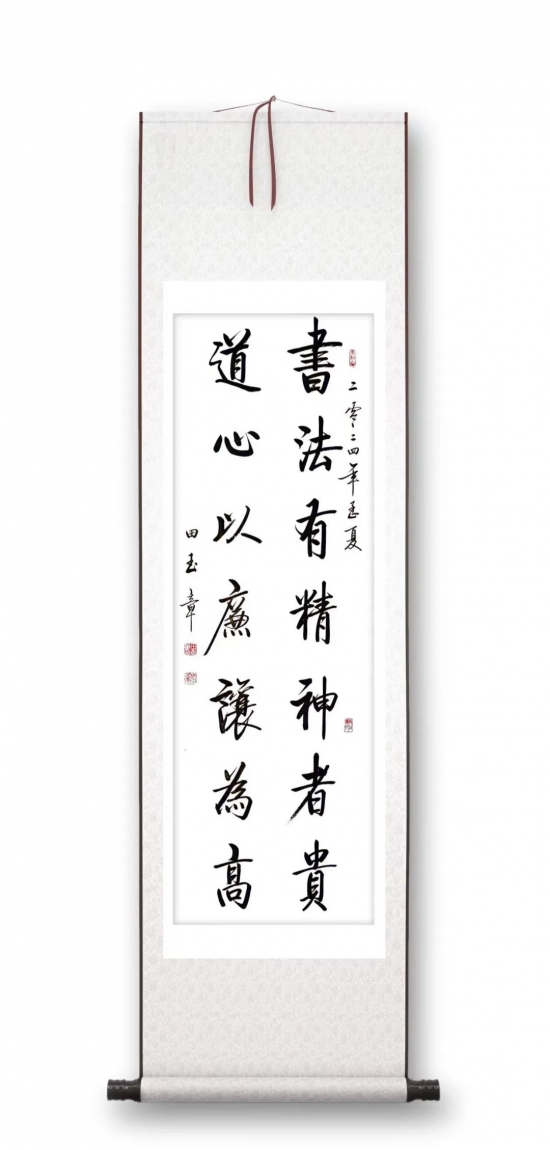 二零二四年孟夏
書法有精神者貴
道心以廉讓為高
田玉章